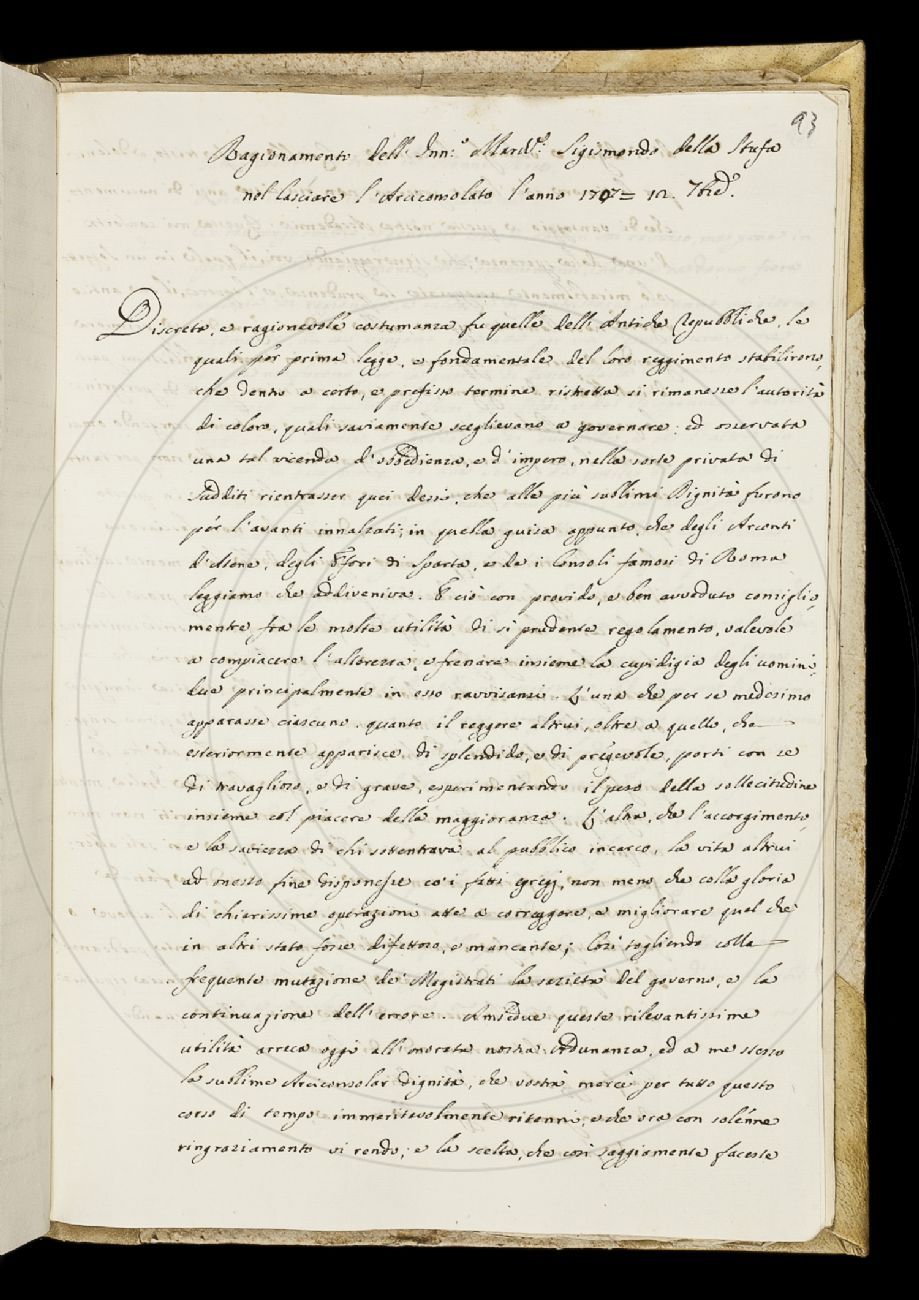 93
Ragionamento dell' Inn.º March.º Sigismondo della Stufa
nel lasciare l'Arciconsolato l'anno 1707 = 12. 7bre.
Discreta, e ragionevole costumanza fu quella dell' Antiche Repubbliche, le
quali pér prima legge, e fondamentale del loro reggimento stabilirono,
che dentro a certo, e prefisso termine ristretta si rimanesse l'autorità
di coloro, quali saviamente sceglievano a governare: ed osservata
una tal vicenda d'obbedienza, e d'impero, nella sorte privata di
sudditi rientrasser quei dessi, che alle più sublimi Dignità furono
pér l'avanti innalzati; in quella guisa appunto, che degli Arconti
d'Atene, degli Efori di Sparta, e de i Consoli famosi di Roma
leggiamo che addiveniva. E ciò con provido, e ben avveduto consiglio,
mentre fra le molte utilità di si prudente regolamento, valevole
a compiacere l'alterezza, e frenare insieme la cupidigia degli uomini,
due principalmente in esso ravvisansi. L'una che per se medesimo
apparasse ciascuno, quanto il reggere altrui, oltre a quello, che
esteriormente apparisce di splendido, e di pregevole, porti con se
di travaglioso, e di grave, esperimentando il peso della sollecitudine
insieme col piacere della maggioranza. L'altra, che l'accorgimento,
e la saviezza di chi sottentrava al pubblico incarco, la vita altrui
ad onesto fine disponesse co' i fatti egregj, non meno che colla gloria
di chiarissime operazioni atte a correggere, e migliorare quel che
in altri stato fosse difettoso, e mancante; Così togliendo colla
frequente mutazione de' Magistrati la sazietà del governo, e la
continuazione dell' errore. Amendue queste rilevantissime
utilità arreca oggi all' onorata nostra Adunanza, ed a me stesso
la sublime Arciconsolar dignità, che vostrà mercè per tutto questo
corso di tempo immeritevolmente ritenni, e che ora con solenne
ringraziamento vi rendo; e la scelta, che così saggiamente faceste